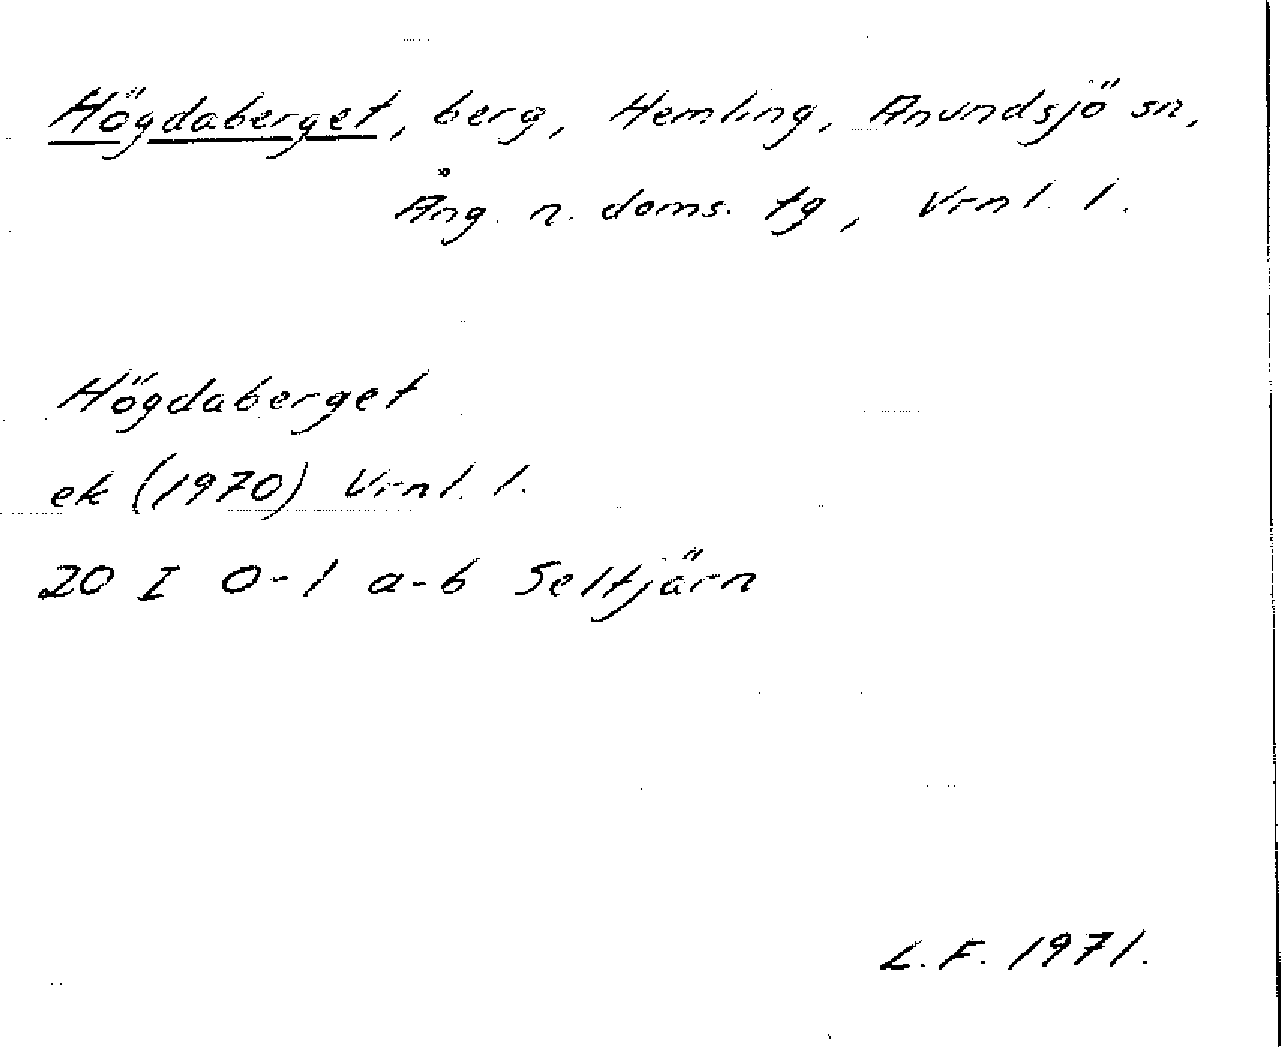 Högdaberget, berg, Hemling, Anundsjö sn,
Ång. n. doms. tg, Vrnl. l.
Högdaberget
ek (1970) Vrnl. l.
20 I 0-1 a-b Seltjärn
L.F. 1971.